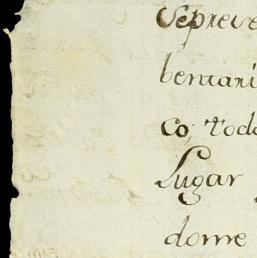 Sepreve
bentari
co, toda
Lugar
dome